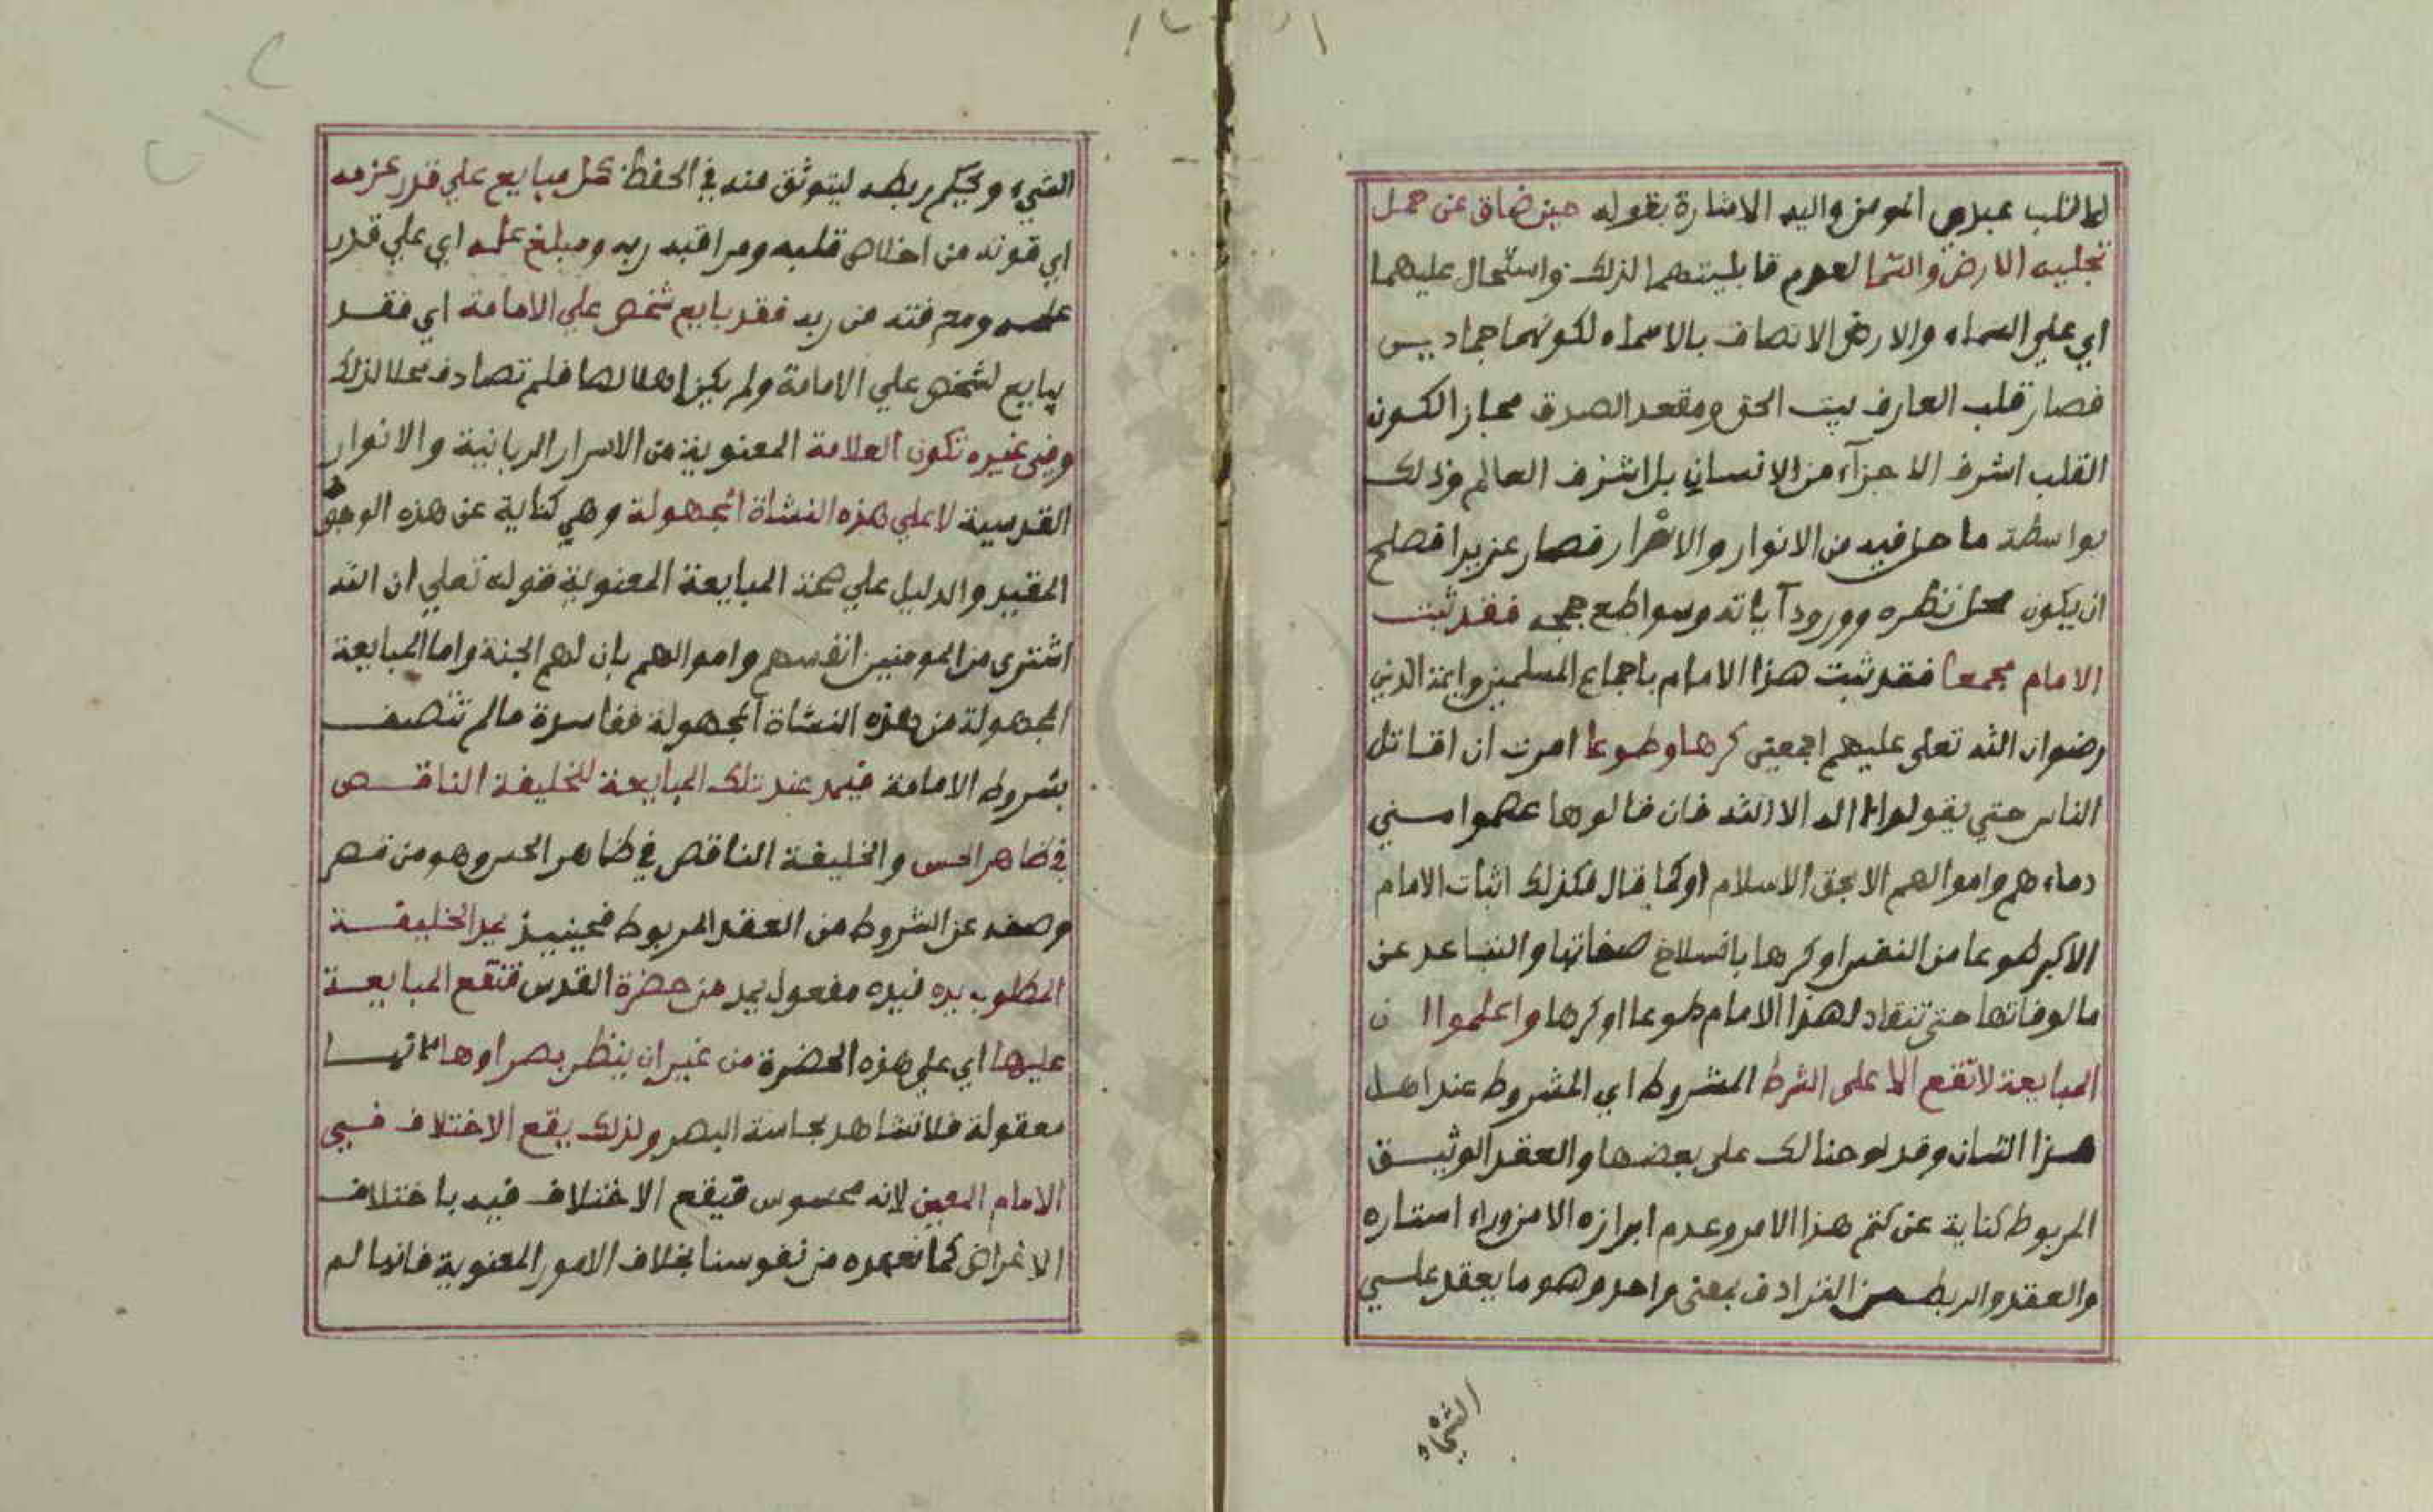 الا قلب عبدي المومن واليه الاشارة بقوله حين ضاق عن حمل
تجليه الارض والسما لعدم قابليتهما لذلك واستحال عليهما
اي علي السماء والارض الاتصاف بالاسماء لكونهما جماديين
فصار قلب العارف بيت الحق ومقعد الصدق مجاز الكون
القلب اشرف الاجزآء من الانسان بل اشرف العالم وذلك
بواسطة ما حل فيه من الانوار والاسرار فصار عزيزا فصلح
ان يكون محل نظره وورود آياته وسواطع حججه فقد ثبت
الامام مجمعا فقد ثبت هذا الامام باجماع المسلمين وايمة الدين
رضوان الله تعلى عليهم اجمعين كرها وطوعا امرت ان اقاتل
الناس حتي يقولوا لا اله الا الله فان قالوها عصموا مني
دماءهم واموالهم الا بحق الاسلام اوكما قال فكذلك اثبات الامام
الاكبر طوعا من النفس او كرها بانسلاخ صفاتها والتباعد عن
مالوفاتها حتى تنقاد لهذا الامام طوعا او كرها واعلموا ان
المبايعة لا تقع الا على الشرط المشروط اي المشروط عند اهل
هذا الشان وقد لوحنا لك على بعضها والعقد الوثيق
المربوط كناية عن كتم هذا الامر وعدم ابرازه الا من وراء استاره
والعقد والربط من الترادف بمعنى واحد وهو ما يعقد علي
الشيء
الشيء ويحكم ربطه ليتوثق منه في الحفظ كل مبايع علي قدر عزمه
اي قوته من اخلاص قلبه ومراقبة ربه ومبلغ علمه اي علي قدر
علمه ومعرفته من ربه فقد بايع شخص علي الامامة اي فقد
يبايع لشخص علي الامامة ولم يكن اهلا لها فلم تصادف محلا لذلك
وفي غيره تكون العلامة المعنوية من الاسرار الربانية والانوار
القدسية لا علي هذه النشاة المجهولة وهي كناية عن هذه الوجوه
المقيد والدليل علي صحة المبايعة المعنوية قوله تعلي ان الله
اشترى من المومنين انفسهم واموالهم بان لهم الجنة واما المبايعة
المجهولة من هذه النشاة المجهولة ففاسدة مالم تتصف
بشروط الامامة فيمد عند تلك المبايعة للخليفة الناقص
في ظاهر الحس والخليفة الناقص في ظاهر الحس وهو من قصر
وصفه عن الشروط من العقد المربوط فحينيذ يمد الخليفة
المطلوب يده فيده مفعول يمد من حضرة القدس فتقع المبايعة
عليها اي علي هذه الحضرة من غير ان ينظر بصر اوها لانها
معقولة فلا تشاهد بحاسة البصر ولذلك يقع الاختلاف في
الامام المعين لانه محسوس فيقع الاختلاف فيه باختلاف
الاغراض كما نعهده من نفوسنا بخلاف الامور المعنوية فانها لم